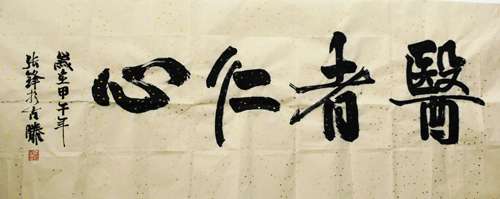 醫者仁心
歲在甲午年
張鋒於古滕